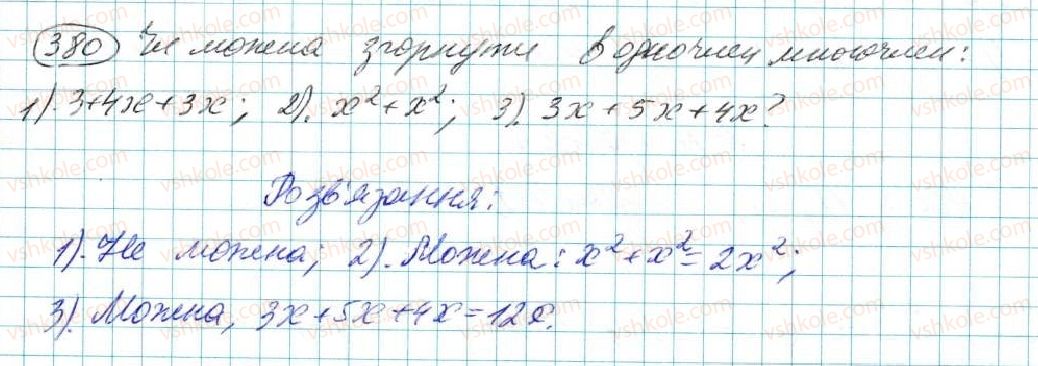 380 Чи можна згорнути в одночлен многочлен:
1) 3+4x+3x; 2). x²+x²; 3). 3x+5x+4x?
Розв'язання:
1). Не можна; 2). Можна: x²+x²=2x²;
3). Можна, 3x+5x+4x=12x.